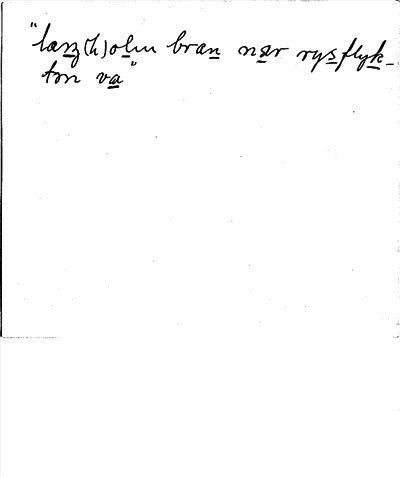 "laŋ(h)olm bran nær rysflyk-
tin va"